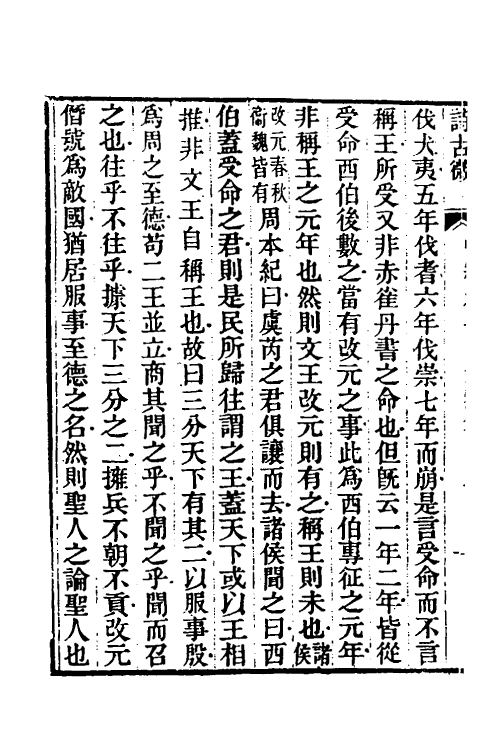 詩古微
伐犬夷五年伐耆六年伐崇七年而崩是言受命而不言
稱王所受又非赤雀丹書之命也但旣云一年二年皆從
受命西伯後數之當有改元之事此爲西伯專征之元年
非稱王之元年也然則文王改元則有之稱王則未也諸侯
改元春秋衞魏皆有周本紀曰虞芮之君俱讓而去諸侯聞之曰西
伯蓋受命之君則是民所歸往謂之王蓋天下或以王相
推非文王自稱王也故曰三分天下有其二以服事殷
爲周之至德苟二王並立商其聞之乎不聞之乎聞而召
之也往乎不往乎據天下三分之二擁兵不朝不貢改元
僭號爲敵國猶居服事至德之名然則聖人之論聖人也